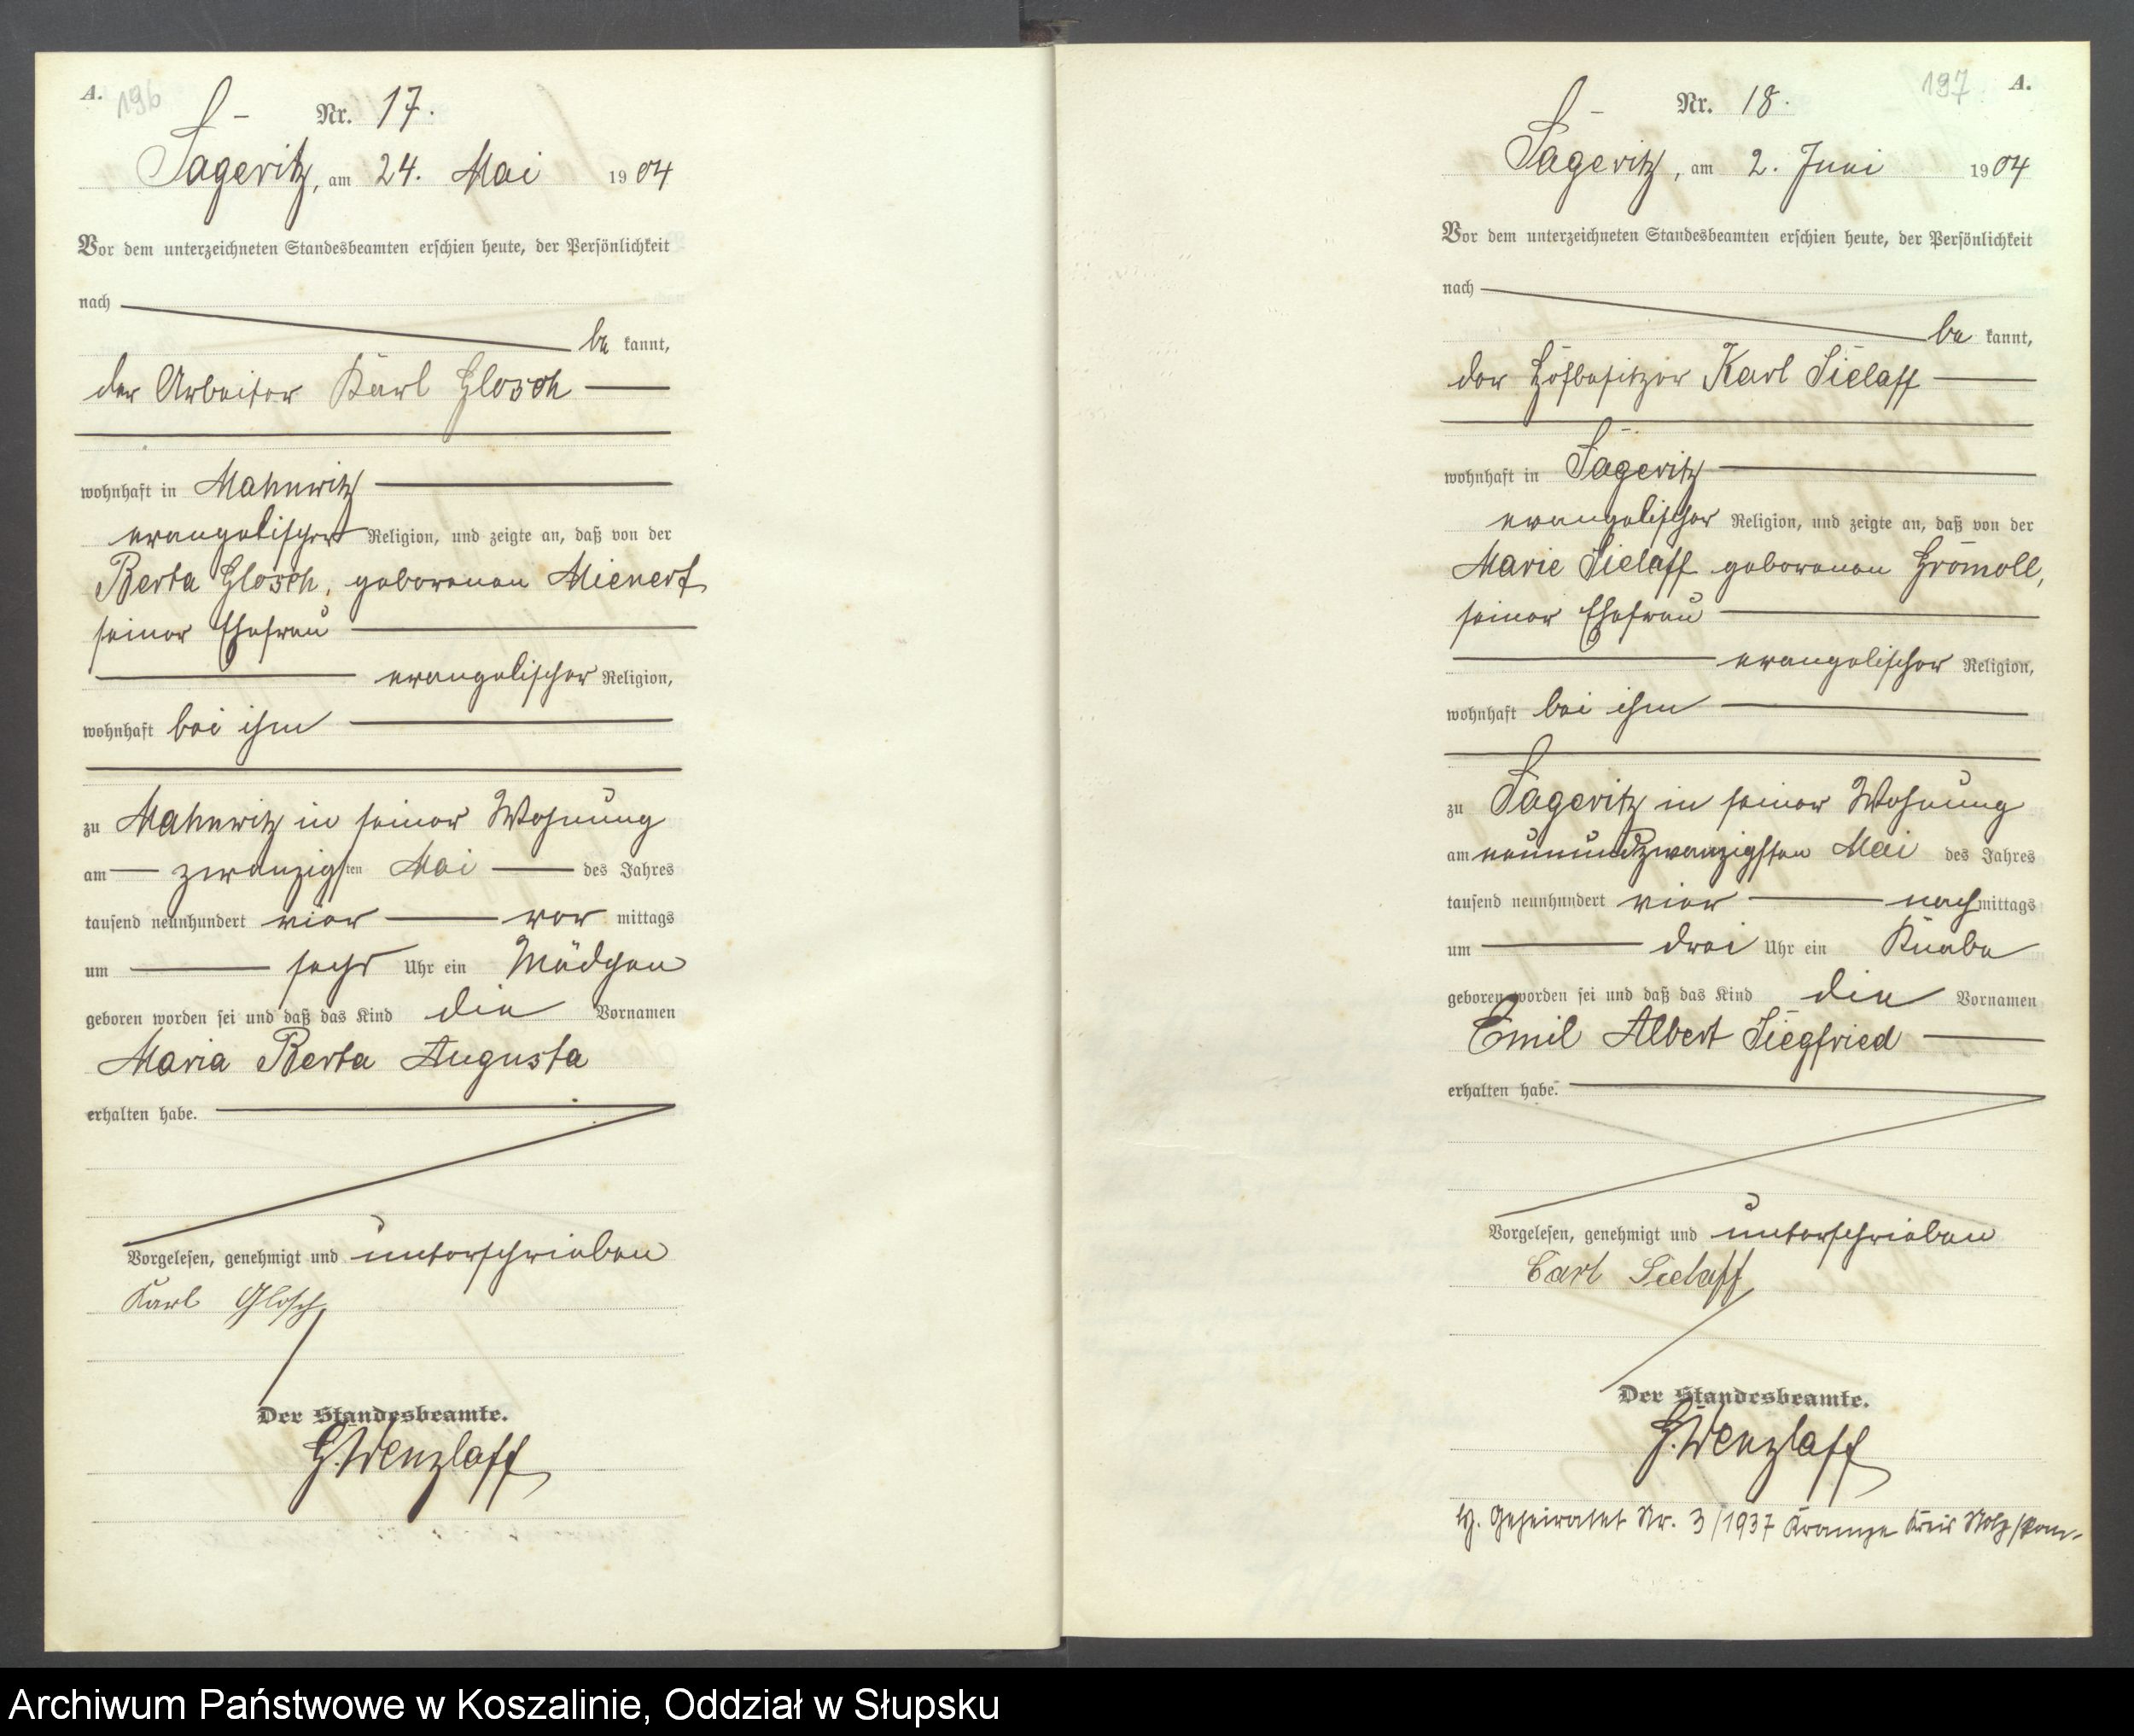 A. 196
Nr. 17.
Sageritz, am 24. Mai 1904
Vor dem unterzeichneten Standesbeamten erschien heute, der Persönlichkeit
nach
be kannt,
der Arbeiter Karl Glosch
wohnhaft in Mahnwitz
evangelischer Religion, und zeigte an, daß von der
Berta Glosch, geborenen Mienert
seiner Ehefrau
evangelischer Religion,
wohnhaft bei ihm
zu Mahnwitz in seiner Wohnung
am zwanzigsten Mai des Jahres
tausend neunhundert vier vor mittags
um sechs Uhr ein Mädchen
geboren worden sei und daß das Kind die Vornamen
Maria Berta Augusta
erhalten habe.
Vorgelesen, genehmigt und unterschrieben
Karl Glosch
Der Standesbeamte.
G. Wenzlaff
197 A.
Nr. 18.
Sageritz, am 2. Juni 1904
Vor dem unterzeichneten Standesbeamten erschien heute, der Persönlichkeit
nach
be kannt,
der Hofbesitzer Karl Sielaff
wohnhaft in Sageritz
evangelischer Religion, und zeigte an, daß von der
Marie Sielaff geborenen Gromoll,
seiner Ehefrau
evangelischer Religion,
wohnhaft bei ihm
zu Sageritz in seiner Wohnung
am neunundzwanzigsten Mai des Jahres
tausend neunhundert vier nach mittags
um drei Uhr ein Knabe
geboren worden sei und daß das Kind die Vornamen
Emil Albert Siegfried
erhalten habe.
Vorgelesen, genehmigt und unterschrieben
Carl Sielaff
Der Standesbeamte.
G. Wenzlaff
Geheiratet Nr. 3/1937 Krampe Kreis Stolp/Pom.
Archiwum Państwowe w Koszalinie, Oddział w Słupsku